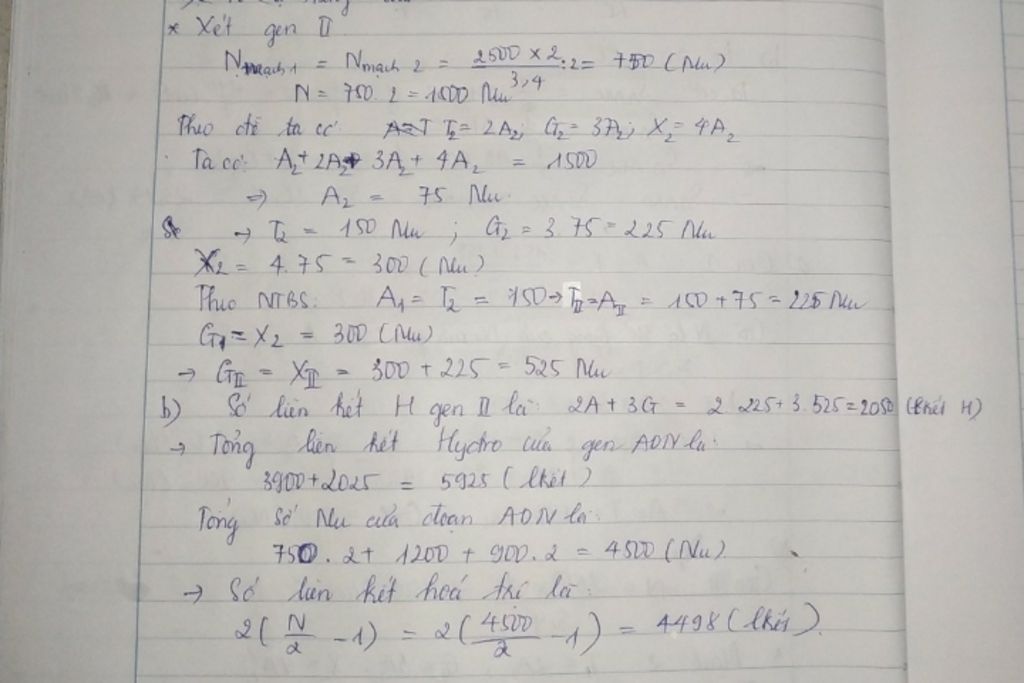 * Xét gen II
Nmạch 1 = Nmạch 2 = 2500 x 2 / 3,4 : 2 = 750 (Nu)
N = 750. 2 = 1500 Nu
Theo đề ta có: T2 = 2A2; G2 = 3A2; X2 = 4A2
Ta có: A2 + 2A2 + 3A2 + 4A2 = 1500
=> A2 = 75 Nu.
→ T2 = 150 Nu ; G2 = 3 75 = 225 Nu
X2 = 4.75 = 300 (Nu)
Theo NTBS: A1 = T2 = 150 → TII = AII = 150 + 75 = 225 Nu
G1 = X2 = 300 (Nu)
→ GII = XII = 300 + 225 = 525 Nu
b) Số liên kết H gen II là: 2A + 3G = 2 225 + 3. 525 = 2050 (lkết H)
→ Tổng liên kết Hydro của gen ADN là:
3900 + 2025 = 5925 (lkết)
Tổng số Nu của đoạn ADN là:
750. 2 + 1200 + 900. 2 = 4500 (Nu)
→ Số liên kết hoá trị là:
2(N/2 - 1) = 2(4500/2 - 1) = 4498 (lkết).